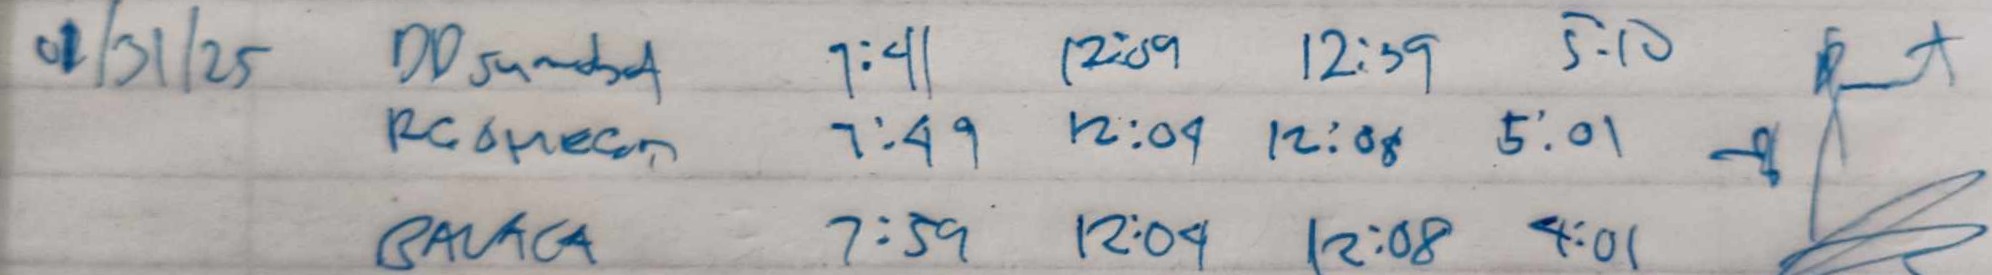 01/31/25 DD 7:41 12:09 12:39 5:10
RC 7:49 12:04 12:08 5:01
BALACA 7:59 12:04 12:08 4:01